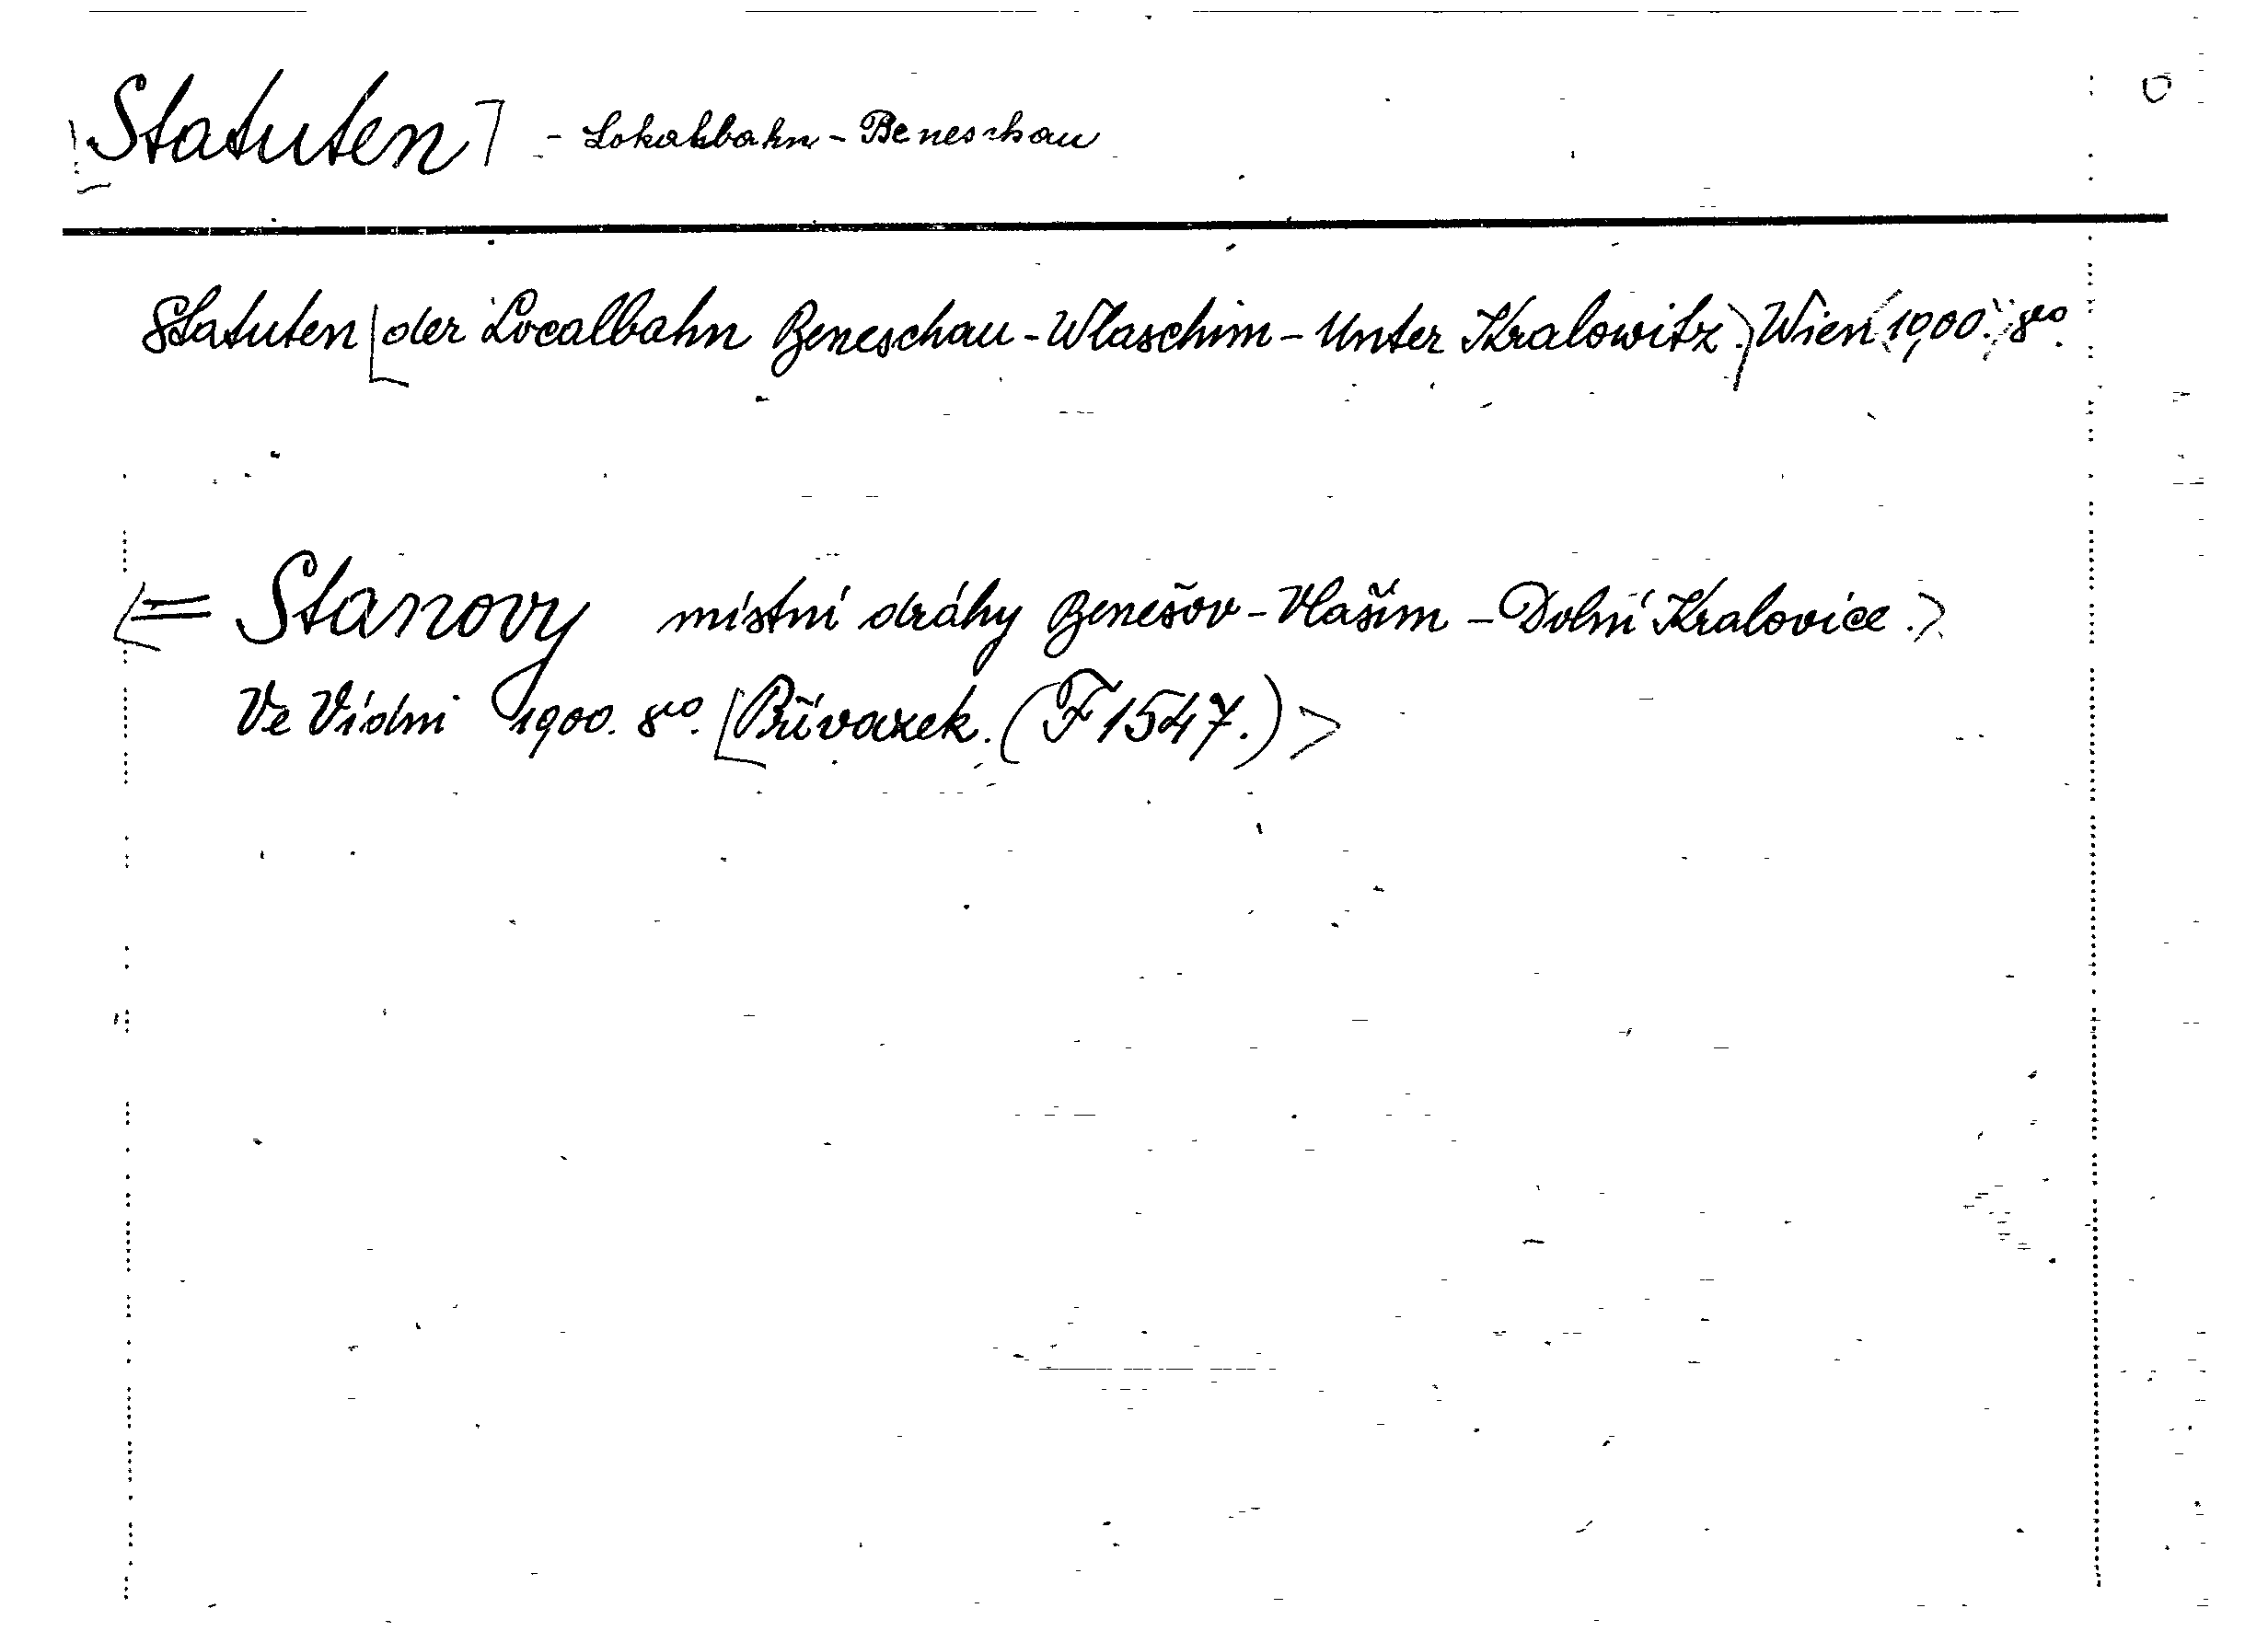 Statuten] - Lokalbahn - Beneschau
Statuten [der Localbahn Beneschau - Wlaschim - Unter Kralowitz.) Wien (1900.) 8vo.
[= Stanovy místní dráhy Benešov - Vlašim - Dolní Kralovice.>
Ve Vídni 1900. 8vo. [Přívazek. (F 1547.)>